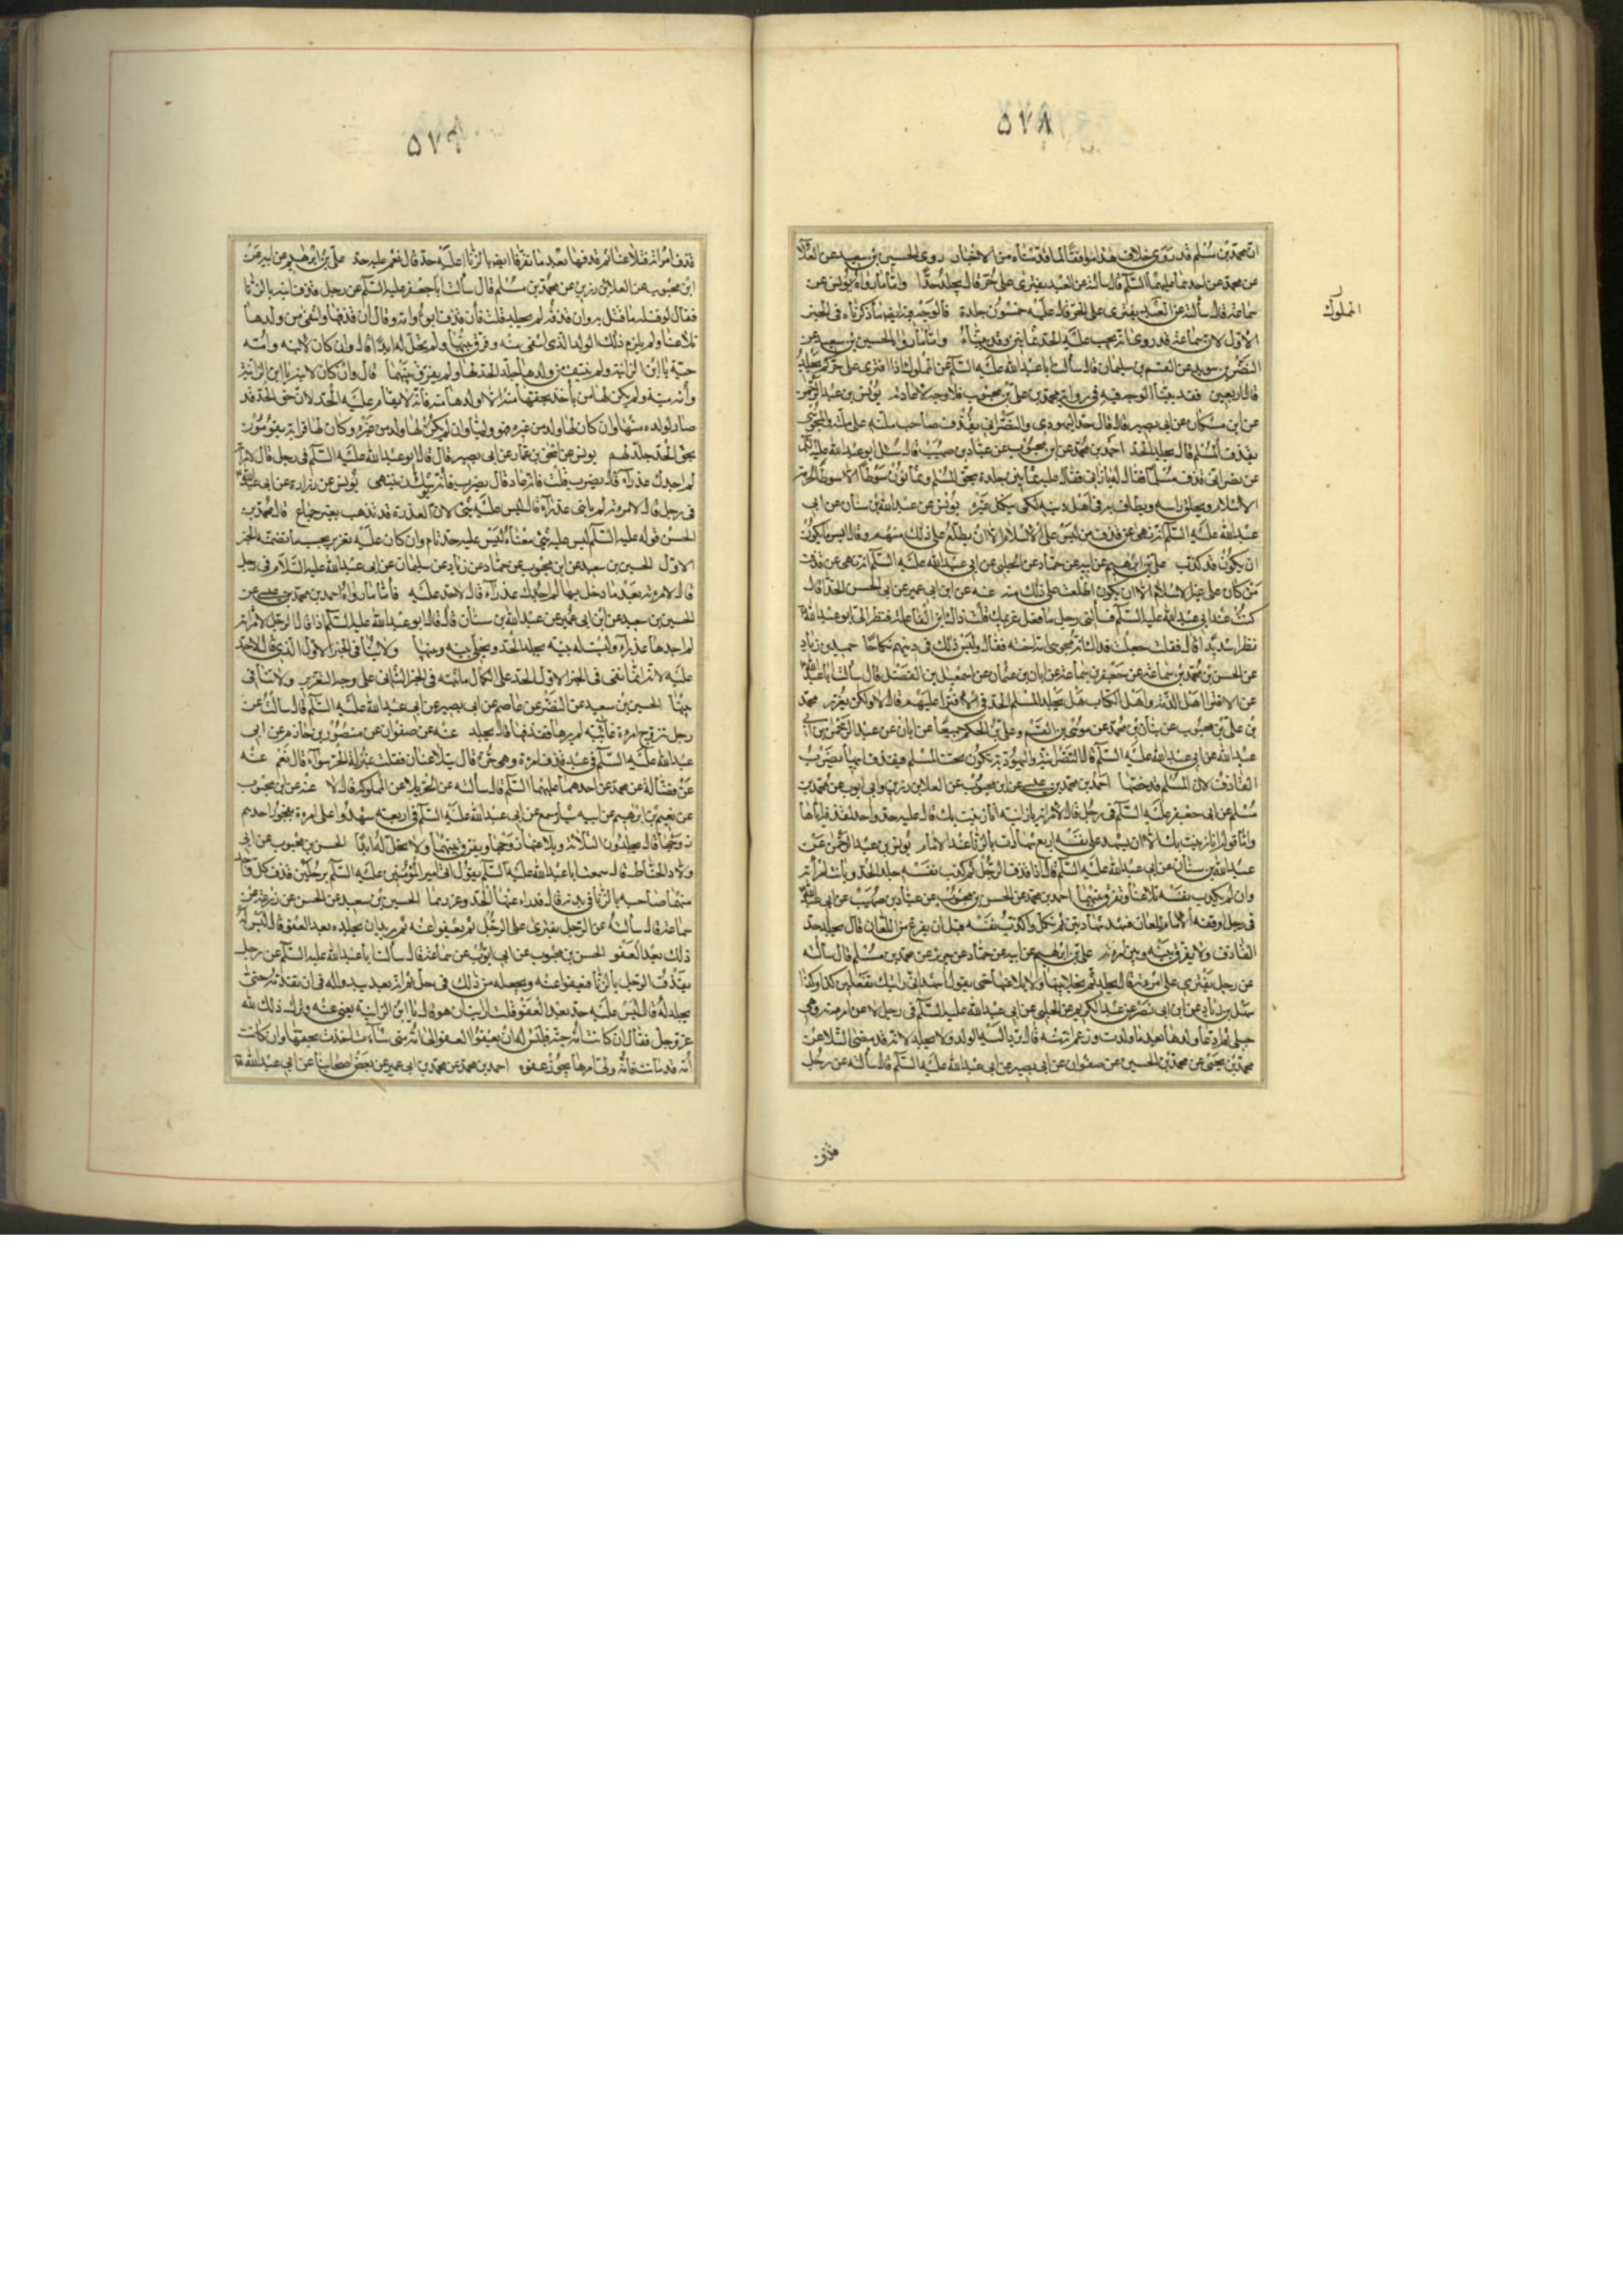 ۵۷۸
المملوك
ان محمد بن مسلم قد روى خلاف هذا موافقا لما قدمناه من الاخبار روى الحسين بن سعيد عن العلا
عن محمد عن احدهما عليهما السلم قال سالته عن العبد يفترى على الحر قال يجلد حدا واما ما رواه يونس عن
سماعة قال سألته عن العبد يفترى على الحر قال عليه خمسون جلدة فالوجه فيه ايضا ما ذكرناه فى الخبر
الاول لان سماعة قد روى انه يجب عليه الحد ثمانين وقد بيناه واما ما رواه الحسين بن سعيد عن
النضر بن سويد عن القسم بن سليمان قال سألت ابا عبد الله عليه السلم عن المملوك اذا افترى على حر كم يجلد
قال اربعين فقد بينا الوجه فيه فى رواية محمد بن على بن محبوب فلا وجه لاعادته يونس بن عبد الرحمن
عن ابن مسكان عن ابى بصير قال قال حد اليهودى والنصرانى
يقذف المسلم قال يجلد الحد احمد بن محمد عن ابن محبوب عن عباد بن صهيب قال سئل ابو عبد الله عليه السلم
عن نصرانى قذف مسلما فقال له يا زانى فقال عليه ثمانين جلدة بحق المسلم وثمانون سوطا الا سوطا لحرمة
الاسلام ويحلق راسه ويطاف به فى اهل دينه لكى ينكل غيره يونس عن عبد الله بن سنان عن ابى
عبد الله عليه السلم انه نهى عن قذف من ليس على الاسلام الا ان يطلع على ذلك منهم وقال ايسر ما يكون
ان يكون قد كذب على بن ابرهيم عن ابيه عن حماد عن الحلبى عن ابى عبد الله عليه السلم انه نهى عن قذف
من كان على غير الاسلام الا ان يكون اطلعت على ذلك منه عنه عن ابن ابى عمير عن ابى الحسن الحذا قال
كنت عند ابى عبد الله عليه السلم فسألنى رجل ما فعل غريمك قلت ذاك ابن الفاعلة فنظر الى ابو عبد الله
نظرا شديدا قال فقلت جعلت فداك انه مجوسى امه اخته فقال اوليس ذلك فى دينهم نكاحا حميد بن زياد
عن الحسن بن محمد بن سماعة عن جعفر بن سماعة عن ابان بن عثمان عن اسمعيل بن الفضل قال سألت ابا عبد الله
عن الافترا على اهل الذمة واهل الكتاب هل يجلد المسلم الحد فى الافترا عليهم قال لا ولكن يعزر محمد
بن على بن محبوب عن بنان بن محمد عن موسى بن القسم وعلى بن الحكم جميعا عن ابان عن عبد الرحمن بن ابى
عبد الله عن ابى عبد الله عليه السلم قال النصرانية واليهودية تكون تحت المسلم فيقذف ابنها يضرب
القاذف لان المسلم قد حصنها احمد بن محمد بن عيسى عن ابن محبوب عن العلا بن رزين وابى ايوب عن محمد بن
مسلم عن ابى جعفر عليه السلم فى رجل قال لامراته يا زانية انا زنيت بك قال عليه حد واحد لقذفه اياها
واما قوله انا زنيت بك الا ان يشهد على نفسه اربع شهادات بالزنا عند الامام يونس بن عبد الرحمن عن
عبد الله بن سنان عن ابى عبد الله عليه السلم قال اذا قذف الرجل ثم كذب نفسه جلد الحد وبانت امراته
وان لم يكذب نفسه تلاعنا ويفرق بينهما احمد بن محمد عن الحسن بن محبوب عن عباد بن صهيب عن ابى عبد الله
فى رجل اوقفه الامام للعان فشهد شهادتين ثم نكل واكذب نفسه قبل ان يفرغ من اللعان قال يجلد حد
القاذف ولا يفرق بينه وبين امراته على بن ابرهيم عن ابيه عن حماد عن حريز عن محمد بن مسلم قال سألته
عن رجل يفترى على امراته قال يجلد ثم يخلى بينهما ولا يلاعنها حتى يقول اشهد انى رايتك تفعلين كذا وكذا
سهل بن زياد عن ابن ابى نصر عن عبد الكريم عن الحلبى عن ابى عبد الله عليه السلم فى رجل لاعن امراته وهى
حبلى ثم ادعا ولدها بعد ما ولدت وزعم انه منه قال يرد اليه الولد ولا يجلد لانه قد مضى التلاعن
محمد بن يحيى عن محمد بن الحسين عن صفوان عن ابى بصير عن ابى عبد الله عليه السلم قال سألته عن رجل
قذف
۵۷۹
قذف امراته فتلاعنا ثم قذفها بعد ما تفرقا ايضا بالزنا اعليه حد قال نعم عليه حد على بن ابرهيم عن ابيه عن
ابن محبوب عن العلا بن رزين عن محمد بن مسلم قال سالت ابا جعفر عليه السلم عن رجل قذف ابنه بالزنا
فقال لو قتله ما قتل به وان قذفه لم يجلد له قلت فان قذف ابوه امه وقال ان قذفها وانتفى من ولدها
تلاعنا ولم يلزم ذلك الولد الذى انتفى منه وفرق بينهما ولم تحل له ابدا قال وان كان لابنه وامه
حية يا ابن الزانية ولم ينتف من ولدها جلد الحد لها ولم يفرق بينهما قال وان كان لابنه يا ابن الزانية
وامه ميتة ولم يكن لها من يأخذ بحقها منه الا ولدها منه فانه لا يقام عليه الحد لان حق الحد قد
صار لولده منها وان كان لها ولد من غيره فهو وليها وان لم يكن لها ولد من غيره وكان لها قرابة يقومون
بحق الحد جلد لهم يونس عن اسحق بن عمار عن ابى بصير قال قال ابو عبد الله عليه السلم فى رجل قال لامراته
لم اجدك عذرآء قال يضرب قلت فانه عاد قال يضرب فانه يوشك ان ينتهى يونس عن زرارة عن ابى عبد الله
فى رجل قال لامراته لم تاتنى عذرآء قال ليس عليه شئ لان العذرة قد تذهب بغير جماع قال محمد بن
الحسن قوله عليه السلم ليس عليه شئ معناه ليس عليه حد تام وان كان عليه تعزير بحسب ما تضمنه الخبر
الاول الحسين بن سعيد عن ابن محبوب عن حماد عن زياد عن سليمان عن ابى عبد الله عليه السلام فى رجل
قال لامراته بعد ما دخل بها لم اجدك عذرآء قال لا حد عليه فأما ما رواه احمد بن محمد بن عيسى عن
الحسين بن سعيد عن ابن ابى عمير عن عبد الله بن سنان قال قال ابو عبد الله عليه السلم اذا قال الرجل لامراته
لم اجدها عذرآء وليست له بينة يجلد الحد ويخلى بينه وبينها ولا ينافى الخبر الاول الذى قال لا حد
عليه لانه انما نفى فى الخبر الاول الحد على الكمال وأثبته فى الخبر الثانى على وجه التعزير ولا تنافى
بينهما الحسين بن سعيد عن النضر عن عاصم عن ابى بصير عن ابى عبد الله عليه السلم قال سالته عن
رجل تزوج امراة غائبة لم يرها فقذفها قال يجلد عنه عن صفوان عن منصور بن حازم عن ابى
عبد الله عليه السلم فى عبد قذف امراته وهى حرة قال يتلاعنان فقلت بمنزلة الحر سوآء قال نعم عنه
عن فضالة عن محمد عن احدهما عليهما السلم قال سألته عن الحر يلاعن المملوكة قال لا عنه عن ابن محبوب
عن نعيم بن ابرهيم عن ابى سيار مسمع عن ابى عبد الله عليه السلم فى اربعة شهدوا على امراة بفجور احدهم
زوجها قال يجلدون الثلاثة ويلاعنها زوجها ويفرق بينهما ولا تحل له ابدا الحسن بن محبوب عن ابى
ولاد الحناط قال سمعت ابا عبد الله عليه السلم يقول اتى امير المؤمنين عليه السلم برجلين قذف كل واحد
منهما صاحبه بالزنا فى بدنه قال فدرأ عنهما الحد وعزرهما الحسين بن سعيد عن الحسن عن زرعة عن
سماعة قال سألته عن الرجل يفترى على الرجل ثم يعفوا عنه ثم يريد ان يجلده بعد العفو قال ليس له
ذلك بعد العفو الحسن بن محبوب عن ابى ايوب عن سماعة قال سألت ابا عبد الله عليه السلم عن رجل
يقذف الرجل بالزنا فيعفوا عنه ويجعله من ذلك فى حل ثم انه بعد يبدو له فى ان يقدمه حتى
يجلد له قال ليس عليه حد بعد العفو قلت ارأيت ان هو قال يا ابن الزانية يعنى عنه وترك ذلك لله
عز وجل فقال ان كانت امه حية فليس له ان يعفو العفو الى امه متى شاءت اخذت بحقها وان كانت
أمه قد ماتت فانه ولى امرها يجوز عفوه احمد بن محمد عن محمد بن ابى عمير عن بعض اصحابنا عن ابى عبد الله